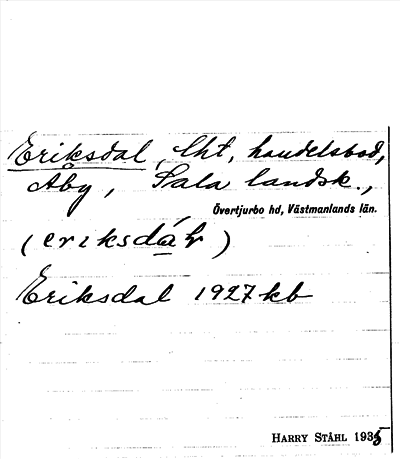 Eriksdal, lht, handelsbod,
Åby, Sala landsk.,
Övertjurbo hd, Västmanlands län.
(eriksdál)
Eriksdal 1927 kb
HARRY STÅHL 1935